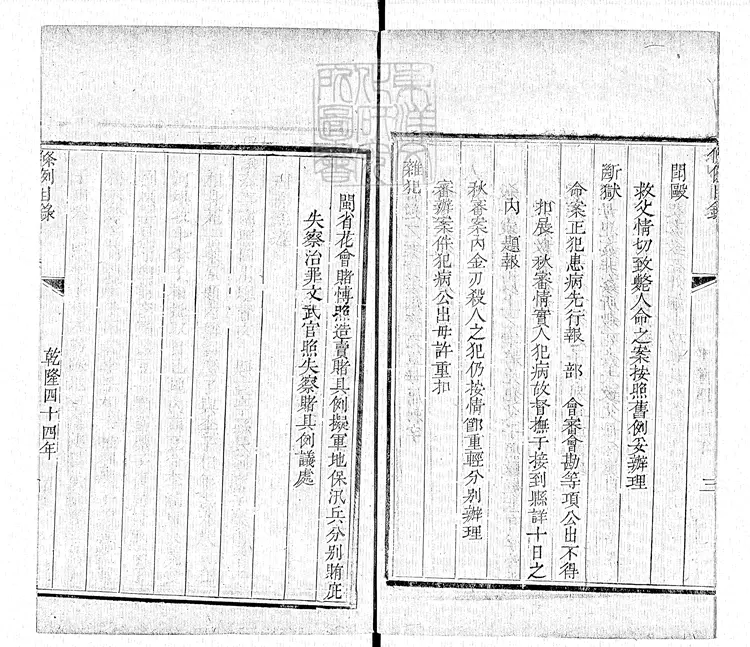 條例目錄
三
鬭毆
救父情切致斃人命之案按照舊例妥辦理
斷獄
命案正犯患病先行報 部 會審會勘等項公出不得
扣展
秋審情實人犯病故督撫于接到縣詳十日之
內 題報
秋審案內金刃殺人之犯仍按情節重輕分别辦理
審辦案件犯病公出毋許重扣
雜犯
閩省花會賭愽照造賣賭具例擬軍地保汛兵分别賄庇
失察治罪文武官照失察賭具例議處
條例目錄
乾隆四十四年
東洋文化研究所圖書